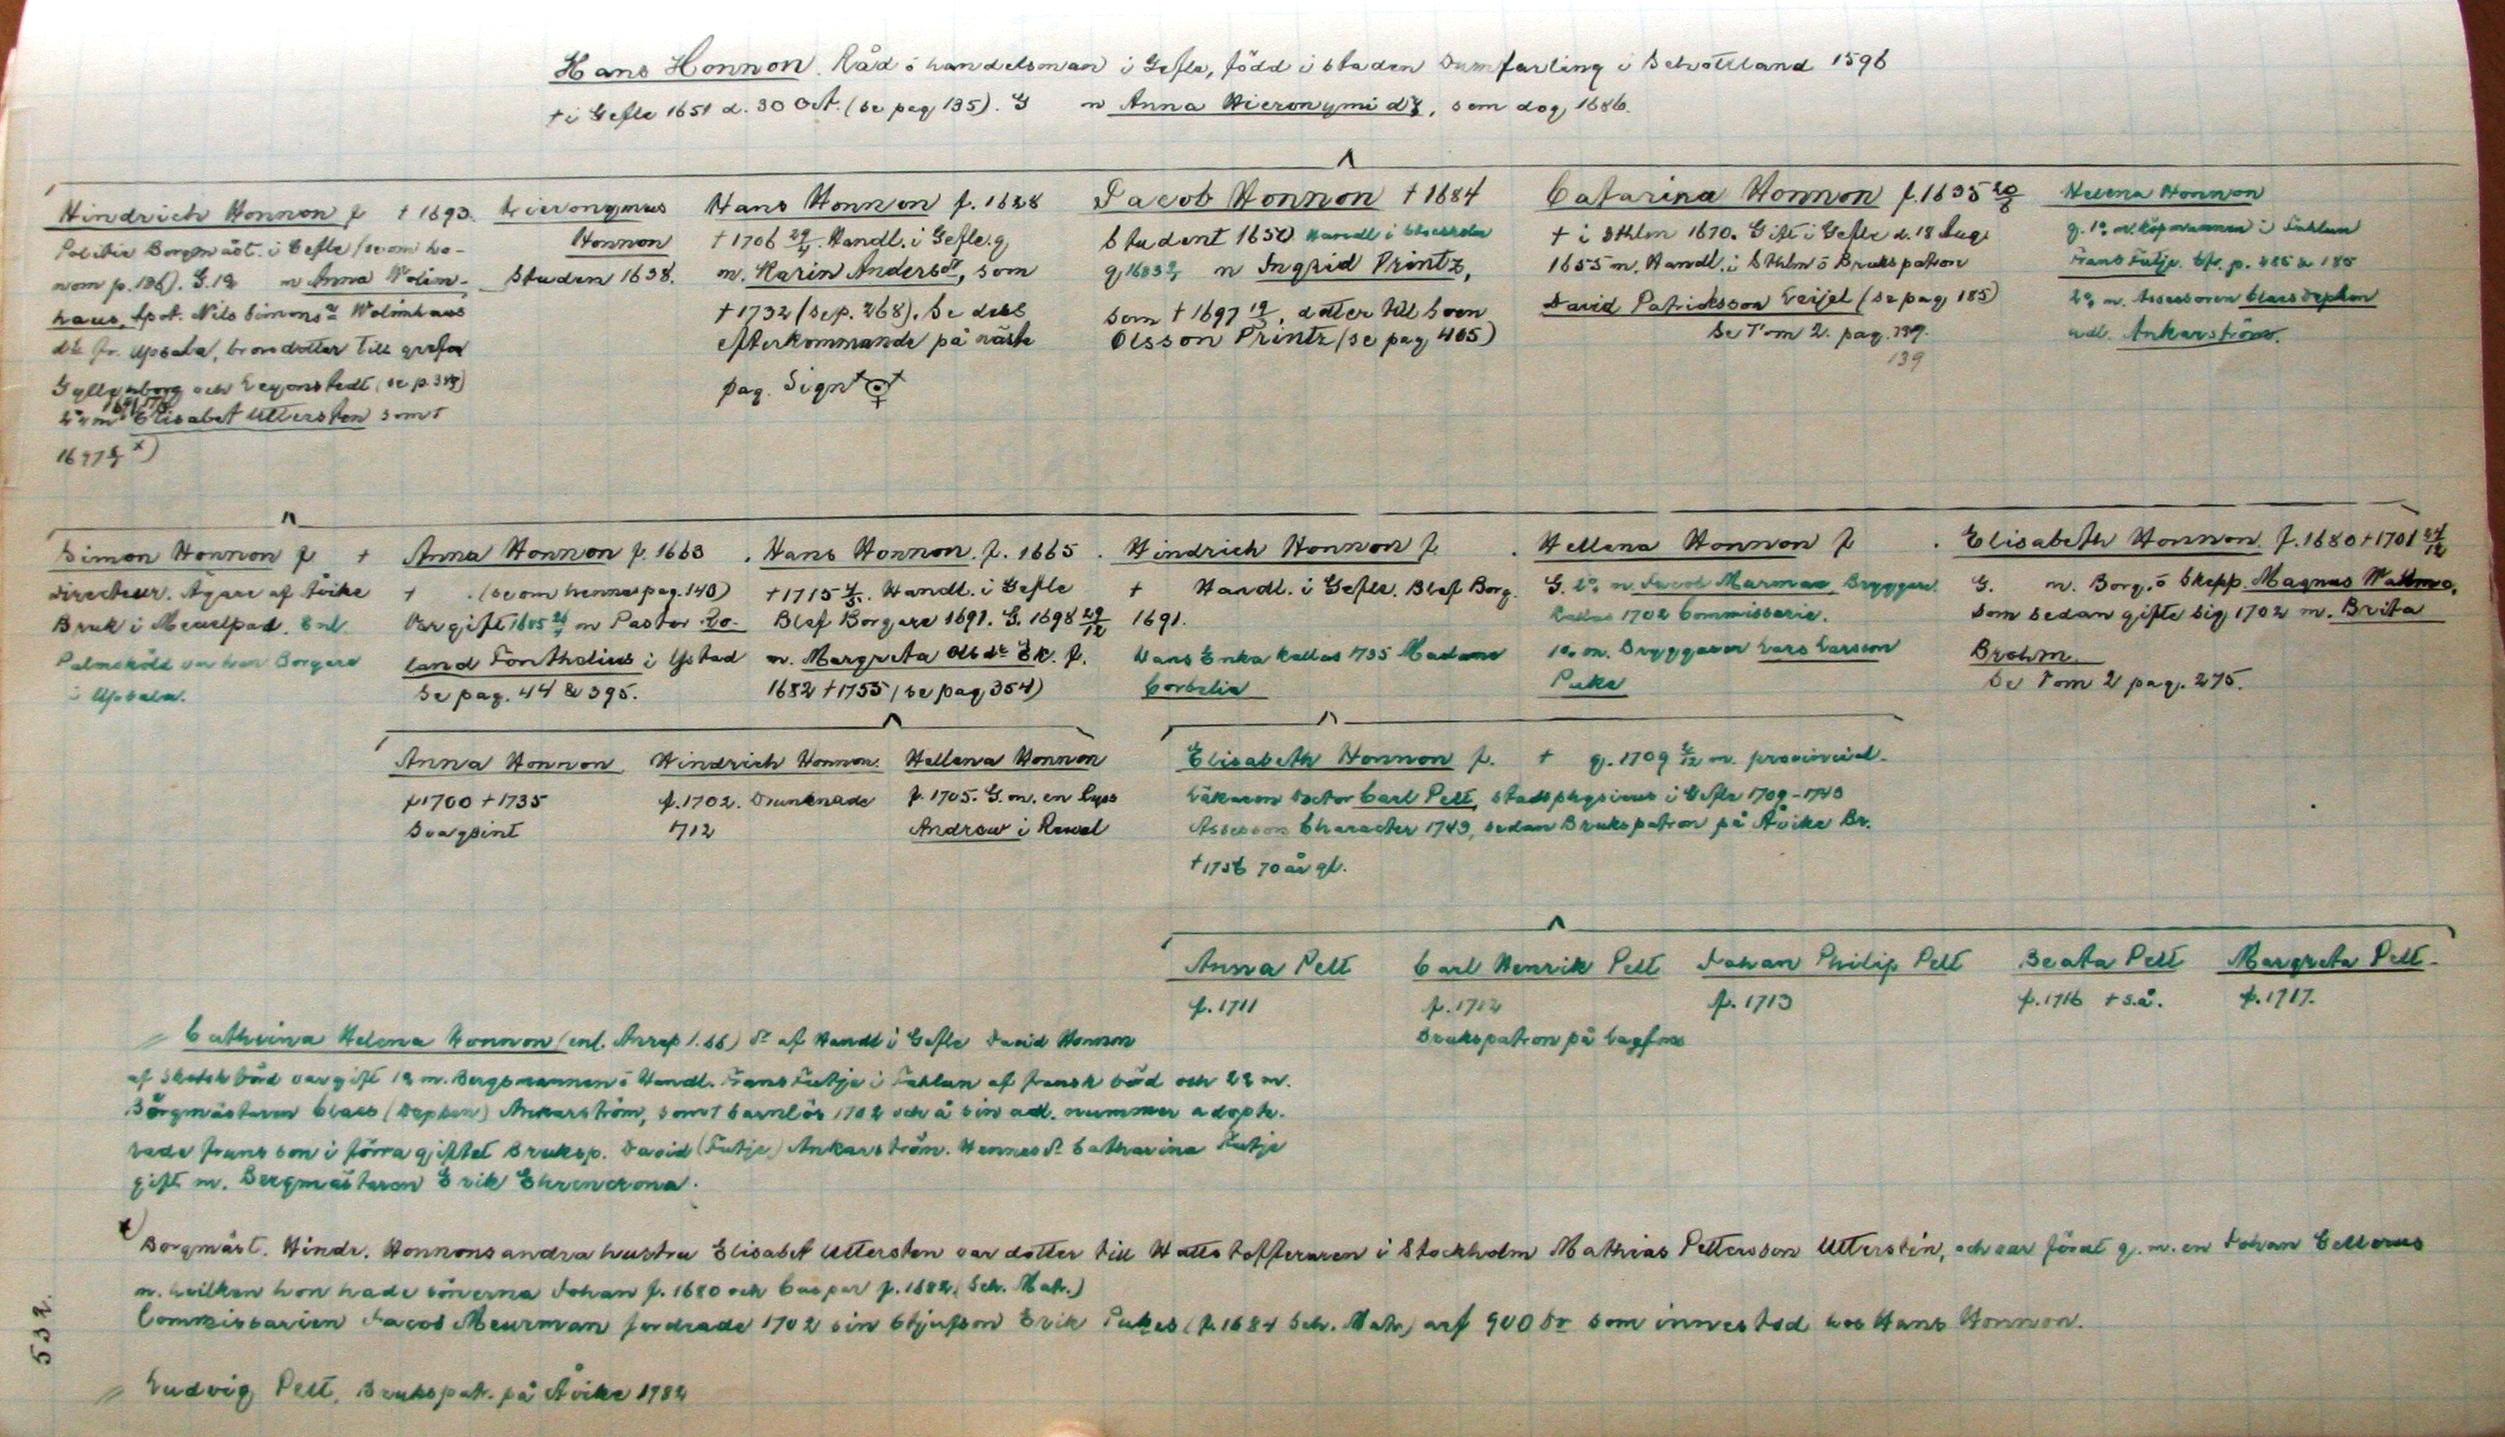 Hans Honnon. Råd ö handelsman i Gefle, född i staden Dumfarling i Schottland 1596
† i Gefle 1651 d. 30 Oct. (se pag 135). G m Anna Hieronymi dr, som dog 1686.
Hindrich Honnon f † 1693.
Politie Borgmäst. i Gefle (se om ho-
nom p. 136). G. 1º m Anna Wolim-
haus, Apot. Nils Simonsn Wolimhaus
dr fr. Upsala, brorsdotter till grefvar
Gyllenborg och Leyonstedt (se p. 348)
2º m Elisabet Uttersten som †
1697 x)
Hieronymus
Honnon
Studen 1638.
Hans Honnon f. 1628
† 1706 29/4. Handl. i Gefle. g
m. Karin Andersdr, som
† 1732 (se p. 268). Se dess
efterkommande på näste
pag. Sign
Jacob Honnon † 1684
Student 1650 Handl i Stockholm
g 1683 m Ingrid Printz,
som † 1697 19/2, dotter till Sven
Olsson Printz (se pag 465)
Catarina Honnon f. 1635 20/8
† i Sthlm 1670. Gift i Gefle d. 18 Aug.
1655 m. Handl. i Sthlm ö Brukspatron
David Patricksson Leijel (se pag 185)
Se Tom 2. pag. 139.
139
Helena Honnon
g. 1º m. Köpmannen i Fahlun
Frans Futje. Cfr. p. 485 & 185
2º m. Assessoren Claes Depken
adl. Ankarström.
Simon Honnon f †
Directeur. Ägare af Åvike
Bruk i Medelpad. Enl.
Palmsköld var han Borgare
i Upsala.
Anna Honnon f. 1663
† (se om hennes pag. 140)
Var gift 1685 m Pastor Ro-
land Fonthelius i Ystad
Se pag. 44 & 395.
Hans Honnon. f. 1665
† 1715. Handl. i Gefle
Blef Borgare 1691. G. 1698 29/12
m. Margreta Olsdr Ek. f.
1682 † 1755 (se pag 354)
Hindrich Honnon f
† Handl. i Gefle. Blef Borg.
1691.
Hans Enka kallas 1735 Madame
Corbelia
Hellena Honnon f
G. 2º m Jacob Murman, Bryggare.
kallas 1702 Commissarie.
1º m. Bryggaren Lars Larsson
Puke
Elisabeth Honnon f. 1680 † 1701 24/12
G. m. Borg. ö Skepp. Magnus Wallmo,
som sedan gifte sig 1702 m. Brita
Brohm.
Se Tom 2 pag. 275.
Anna Honnon
f 1700 † 1735
Svagsint
Hindrich Honnon
f. 1702. Drunknade
1712
Hellena Honnon
f. 1705. G. m. en
Andrew i Rewal
Elisabeth Honnon f. † g. 1709 m. provincial-
läkaren Doctor Carl Pelt, stadsphysicus i Gefle 1709-1743
Assessors Character 1743, sedan Brukspatron på Åvike Br.
† 1756 70 år gl.
Anna Pelt
f. 1711
Carl Henrik Pelt
f. 1712
Brukspatron på Lagfors
Johan Philip Pelt
f. 1713
Beata Pelt
f. 1716 † s.å.
Margreta Pelt
f. 1717.
Cathrina Helena Honnon (enl. Anrep 1.66) dr af Handl i Gefle David Honnon
af Skotsk börd var gift 1º m. Bergsmannen ö Handl. Frans Futje i Fahlun af fransk börd och 2º m.
Borgmästaren Claes (Depken) Ankarström, som † barnlös 1702 och å sin adl. nummer adopte-
rade fruns son i förra giftet Bruksp. David (Futje) Ankarström. Hennes dr Catharina Futje
gift m. Bergmästaren Erik Ehrencrona.
x) Borgmäst. Hindr. Honnons andra hustru Elisabet Uttersten var dotter till Hattstofferaren i Stockholm Mathias Pettersson Utterstén, och var förut g. m. en Johan Cellorius
m. hvilken hon hade sönerna Johan f. 1680 och Caspar f. 1682. (Sch. Matr.)
Commissarien Jacob Meurman fordrade 1702 sin Styfson Erik Pukes (f. 1684 Sch. Matr.) arf 900 Dr som innestod hos Hans Honnon.
Ludvig Pelt, Brukspatr. på Åvike 1782
532.